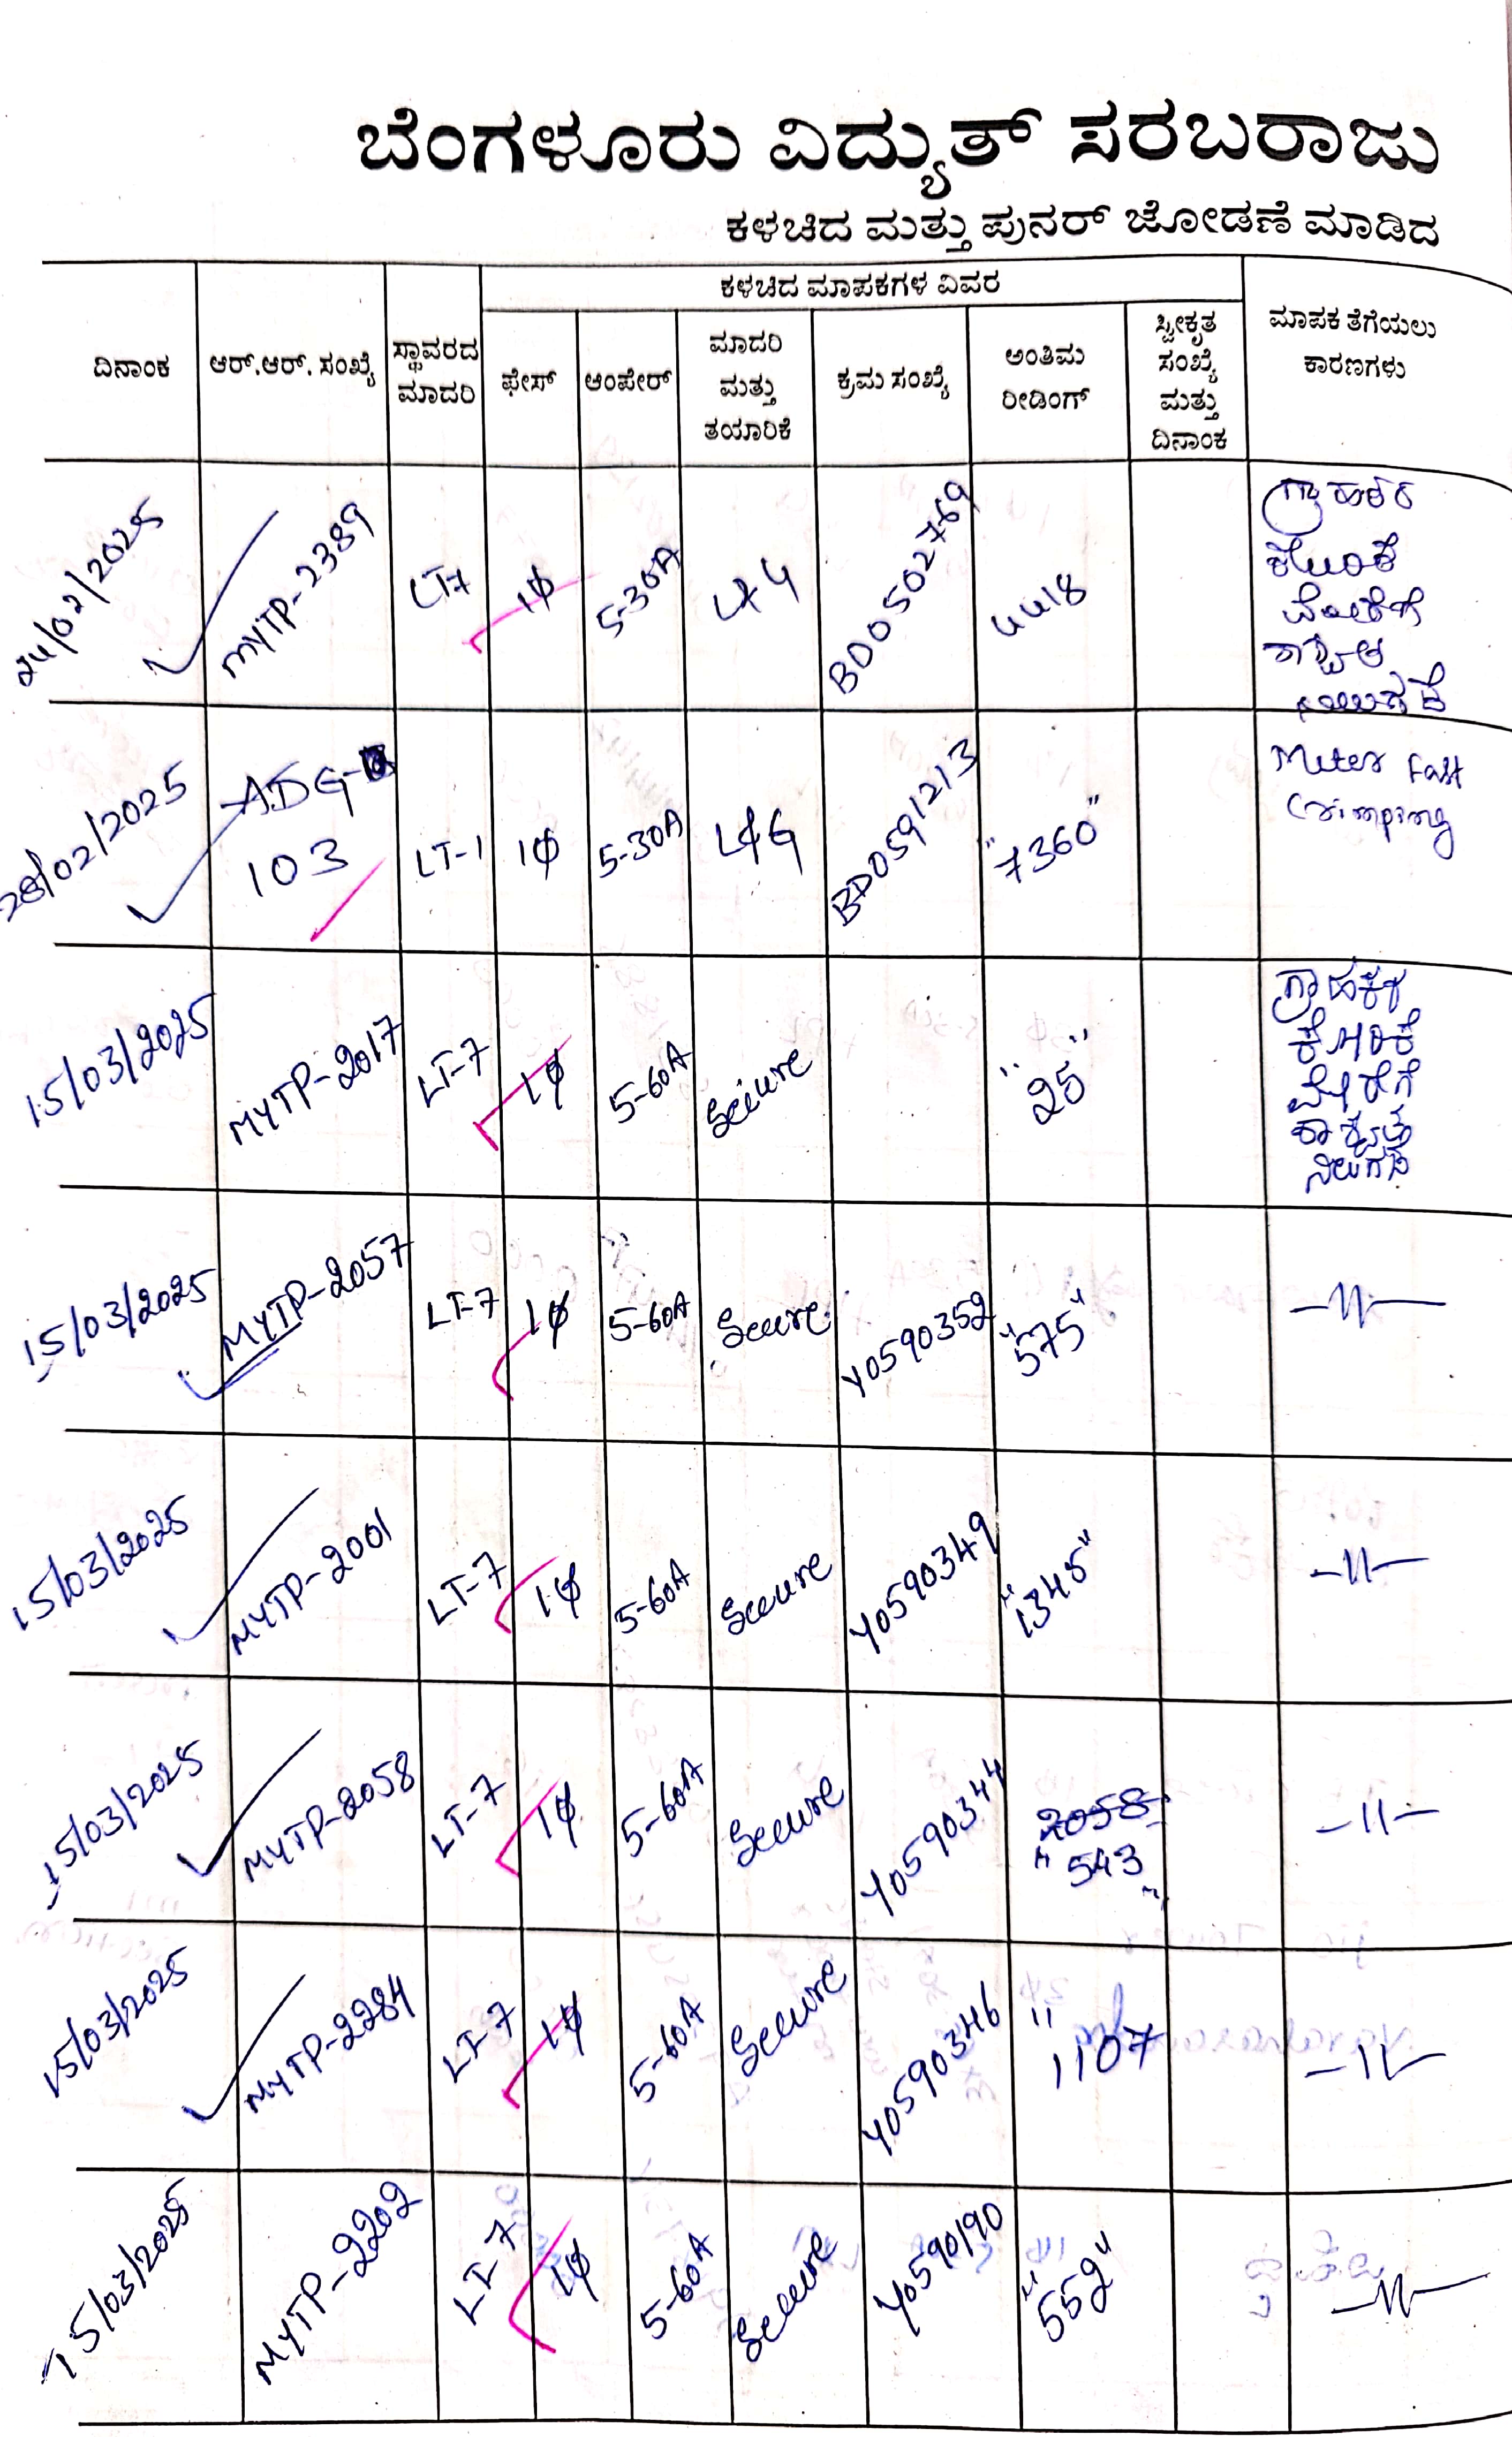 ಬೆಂಗಳೂರು ವಿದ್ಯುತ್ ಸರಬರಾಜು
ಕಳಚಿದ ಮತ್ತು ಪುನರ್ ಜೋಡಣೆ ಮಾಡಿದ
ದಿನಾಂಕ
ಆರ್.ಆರ್. ಸಂಖ್ಯೆ
ಸ್ಥಾವರದ
ಮಾದರಿ
ಕಳಚಿದ ಮಾಪಕಗಳ ವಿವರ
ಫೇಸ್
ಆಂಪೇರ್
ಮಾದರಿ
ಮತ್ತು
ತಯಾರಿಕೆ
ಕ್ರಮ ಸಂಖ್ಯೆ
ಅಂತಿಮ
ರೀಡಿಂಗ್
ಸ್ವೀಕೃತ
ಸಂಖ್ಯೆ
ಮತ್ತು
ದಿನಾಂಕ
ಮಾಪಕ ತೆಗೆಯಲು
ಕಾರಣಗಳು
24/02/2025
MYTP-2389
LT7
1ϕ
5-30A
L&G
BD0502769
4418
ಗ್ರಾಹಕರ
ಕೋರಿಕೆ
ಮೇರೆಗೆ
ಶಾಶ್ವತ
28/02/2025
ADG-
103
LT-1
1ϕ
5-30A
L&G
BD0591213
"7360"
Meter Fast
Crimping
15/03/2025
MYTP-2017
LT-7
1ϕ
5-60A
Secure
"25"
ಗ್ರಾಹಕರ
ಕೋರಿಕೆ
ಮೇರೆಗೆ
ಶಾಶ್ವತ
ನಿಲುಗಡೆ
15/03/2025
MYTP-2057
LT-7
1ϕ
5-60A
Secure
Y0590352
"575"
-11-
15/03/2025
MYTP-2001
LT-7
1ϕ
5-60A
Secure
Y0590349
"1345"
-11-
15/03/2025
MYTP-2058
LT-7
1ϕ
5-60A
Secure
Y0590344
2058
"543"
-11-
15/03/2025
MYTP-2284
LT-7
1ϕ
5-60A
Secure
Y0590346
"1107
-11-
15/03/2025
MYTP-2202
LT-7
1ϕ
5-60A
Secure
Y0590190
"552"
-11-